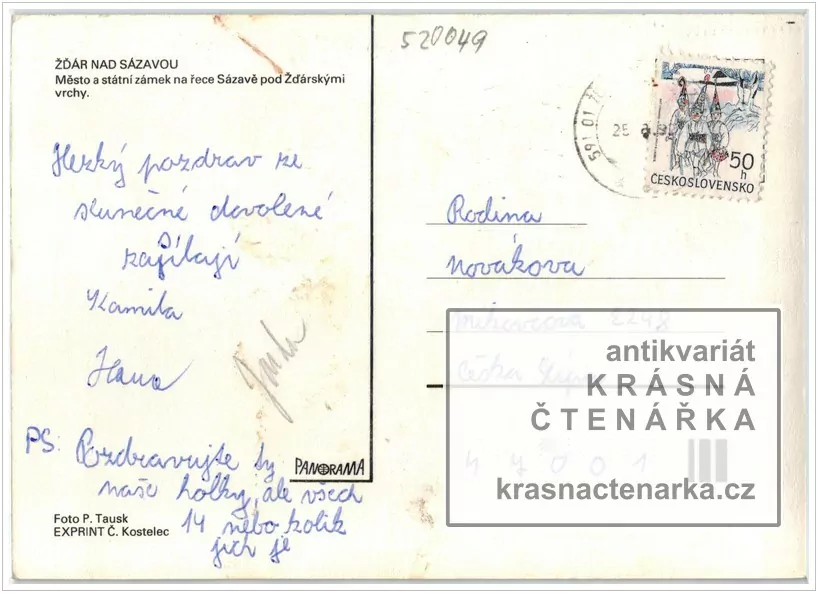 520049
ŽĎÁR NAD SÁZAVOU
Město a státní zámek na řece Sázavě pod Žďárskými
vrchy.
591 01
25
50
h
ČESKOSLOVENSKO
Hezký pozdrav ze
slunečné dovolené
zasílají
Kamila
Hana
PS: Pozdravujte ty
naše holky, ale všech
14 nebo kolik
jich je
PANORAMA
Foto P. Tausk
EXPRINT Č. Kostelec
Rodina
Novákova
2248
Česká Lípa
47001
antikvariát
KRÁSNÁ
ČTENÁŘKA
krasnactenarka.cz